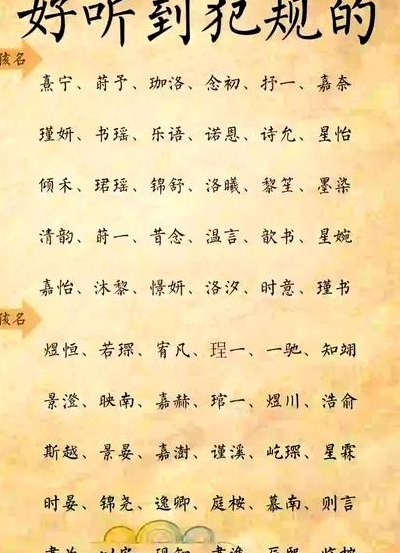 好听到犯规的
孩名
熹宁、莳予、珈洛、念初、抒一、嘉奈
瑾妍、书瑶、乐语、诺恩、诗允、星怡
倾禾、珺瑶、锦舒、洛曦、黎笙、墨染
清韵、莳一、昔念、温言、歆书、星婉
嘉怡、沐黎、憬妍、洛汐、时意、瑾书
孩名
煜恒、若琛、宥凡、珵一、一驰、知翊
景澄、映南、嘉赫、琯一、煜川、浩俞
斯越、景晏、嘉澍、谨溪、屹琛、星霖
时晏、锦尧、逸卿、庭桉、慕南、则言